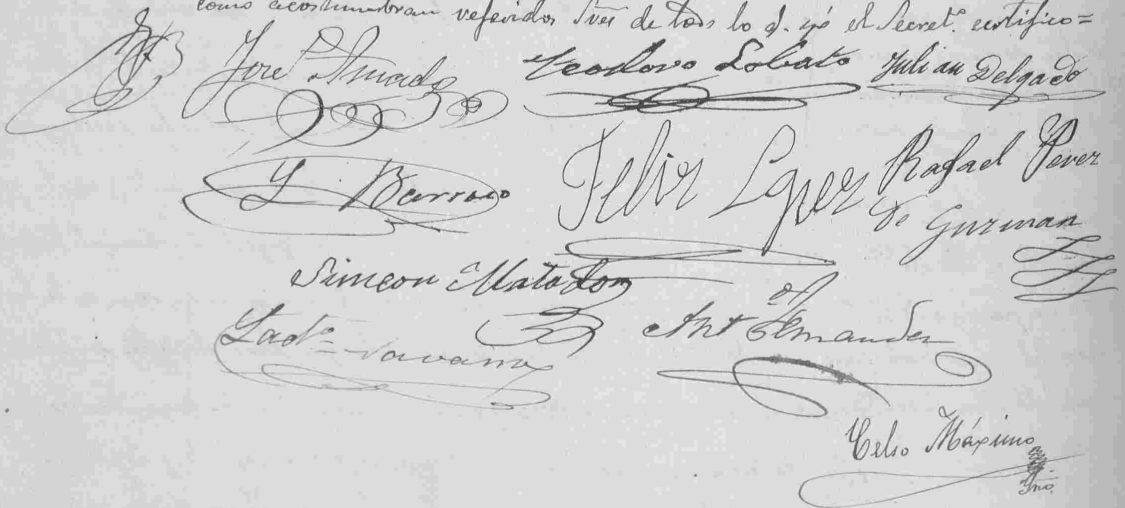 como acostumbran referidos Sres de todo lo q. yó el Secret.º certifico=
José Amado Teodoro Lobato Julian Delgado
Y Barroso Felix Lopez Rafael Perez
de Guzman
Simeon Matador
Lad.º Navarro Ant.º Fernandez
Celso Máximo